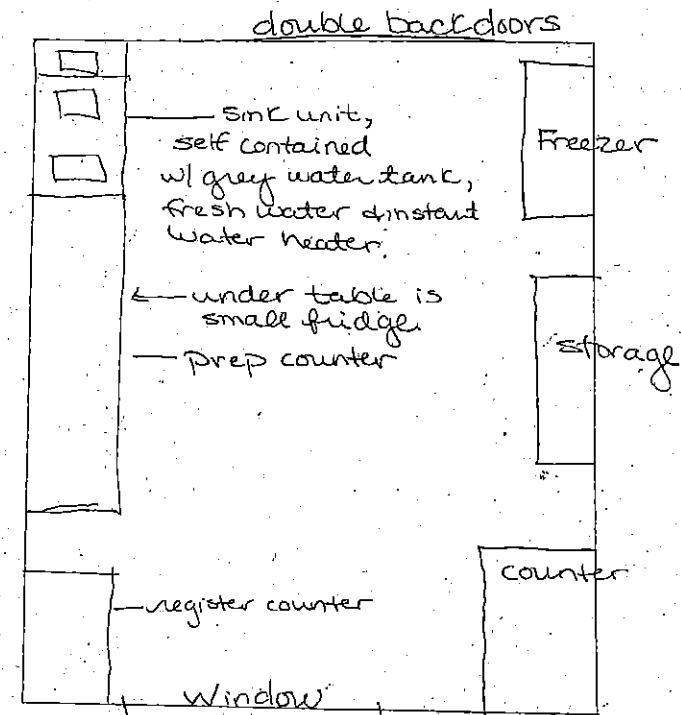 double backdoors
sink unit,
self contained
w/ grey water tank,
fresh water & instant
water heater.
Freezer
under table is
small fridge.
prep counter
storage
counter
register counter
Window